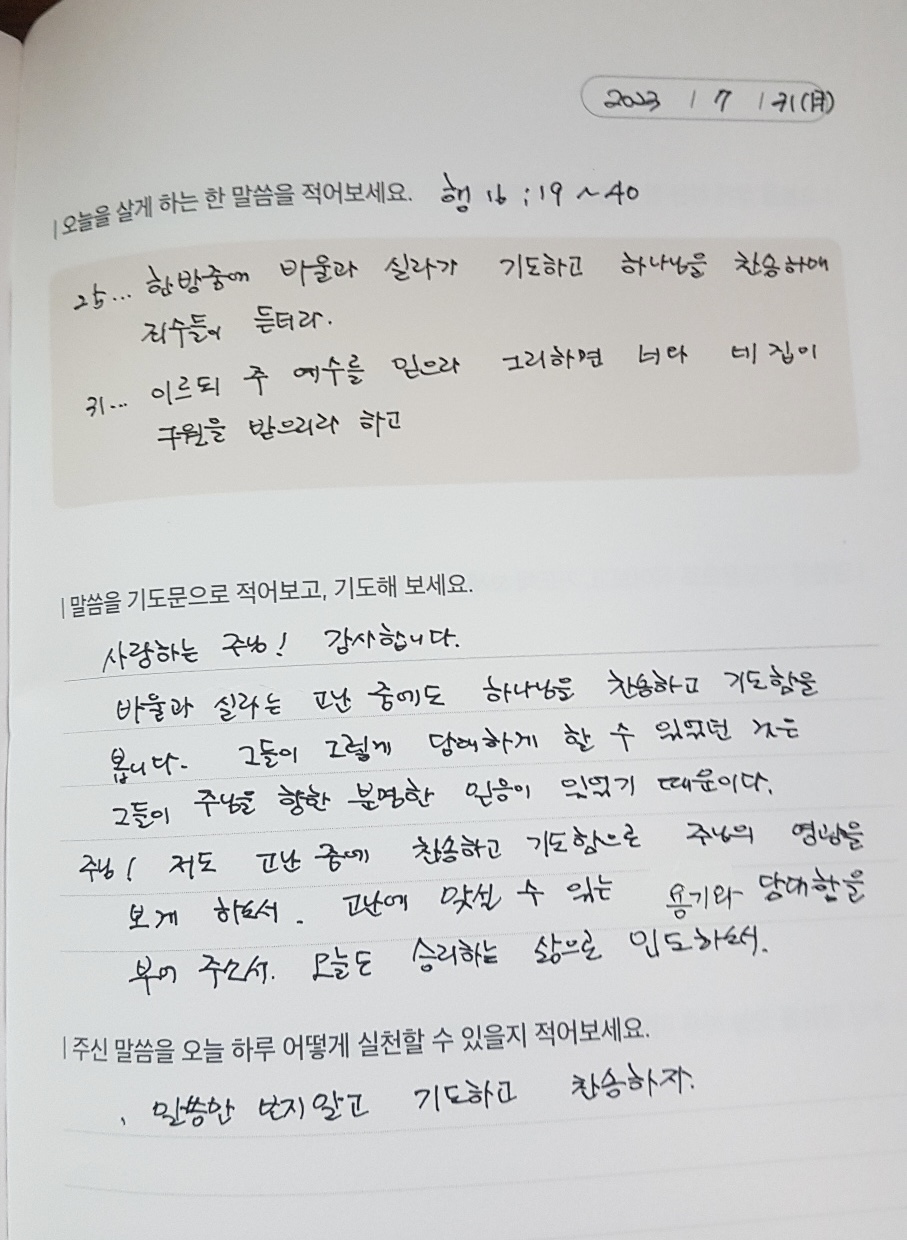 2023 / 7 / 31(月)
오늘을 살게 하는 한 말씀을 적어보세요. 행 16 : 19 ~ 40
25... 한밤중에 바울과 실라가 기도하고 하나님을 찬송하매
죄수들이 듣더라.
31... 이르되 주 예수를 믿으라 그리하면 너와 네 집이
구원을 받으리라 하고
말씀을 기도문으로 적어보고, 기도해 보세요.
사랑하는 주님! 감사합니다.
바울과 실라는 고난 중에도 하나님을 찬송하고 기도함을
봅니다. 그들이 그렇게 담대하게 할 수 있었던 것은
그들이 주님을 향한 분명한 믿음이 있었기 때문이다.
주님! 저도 고난 중에 찬송하고 기도함으로 주님의 영광을
보게 하소서. 고난에 맞설 수 있는 용기와 담대함을
부어 주소서. 오늘도 승리하는 삶으로 인도하소서.
주신 말씀을 오늘 하루 어떻게 실천할 수 있을지 적어보세요.
보지말고 기도하고 찬송하자.